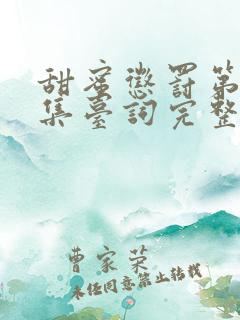 甜蜜懲罰第
集臺詞完整
曹家榮
未經同意禁止轉載